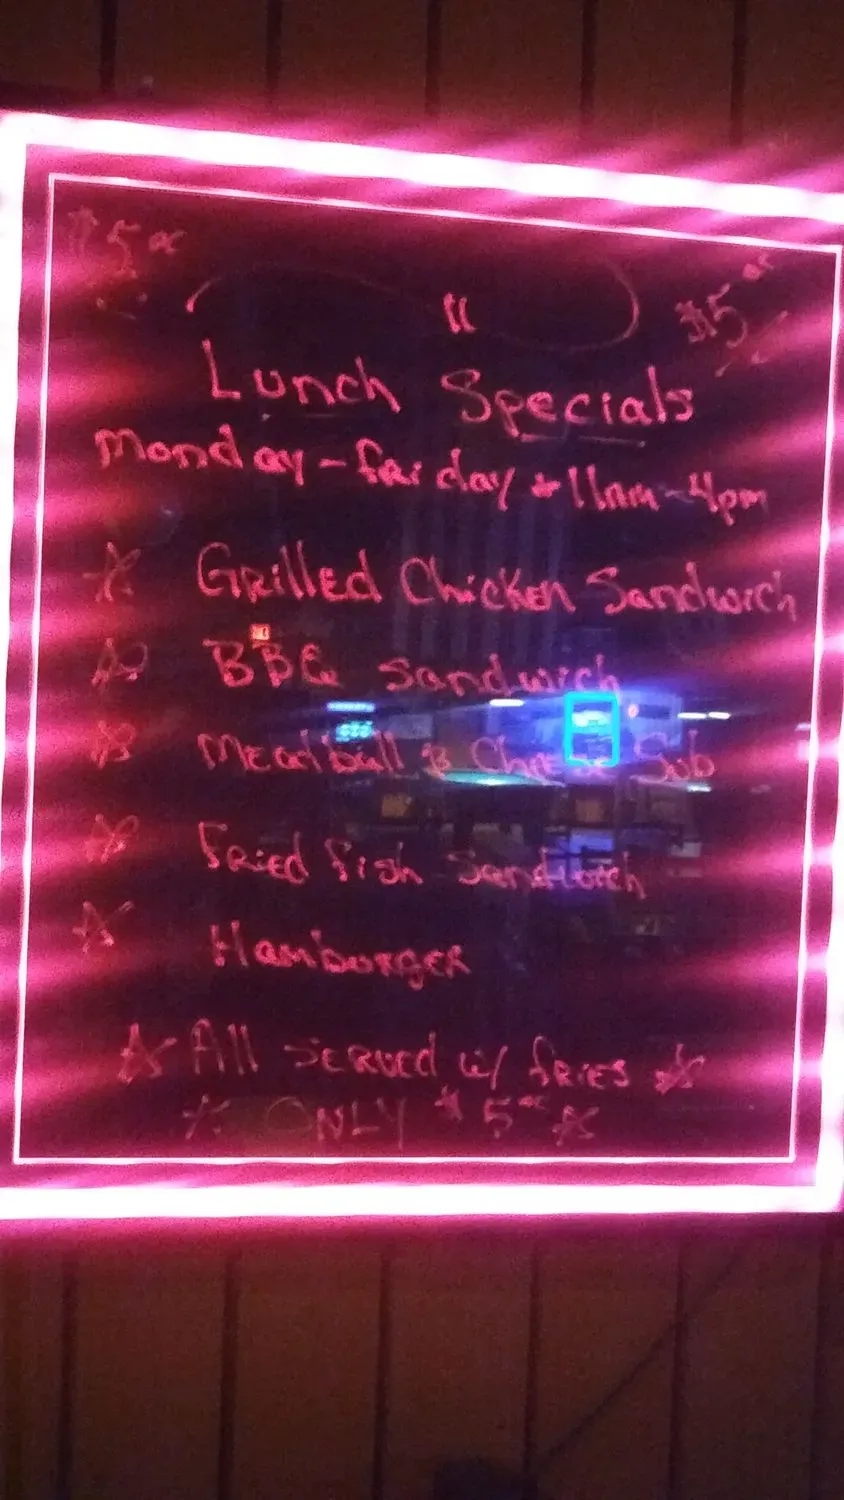 $5.00
$5.00
Lunch Specials
Monday - Friday + 11am - 4pm
☆ Grilled Chicken Sandwich
☆ BBQ Sandwich
☆ Meatball & Cheese Sub
☆ Fried Fish Sandwich
☆ Hamburger
☆ All SERVED w/ FRIES ☆
☆ ONLY $5.00 ☆